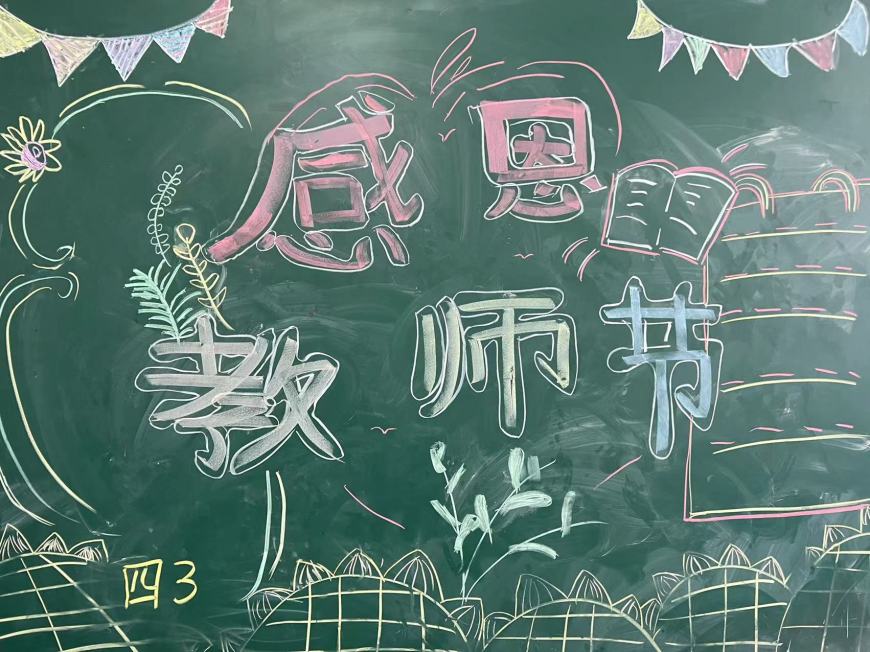 感恩
教师节
四3